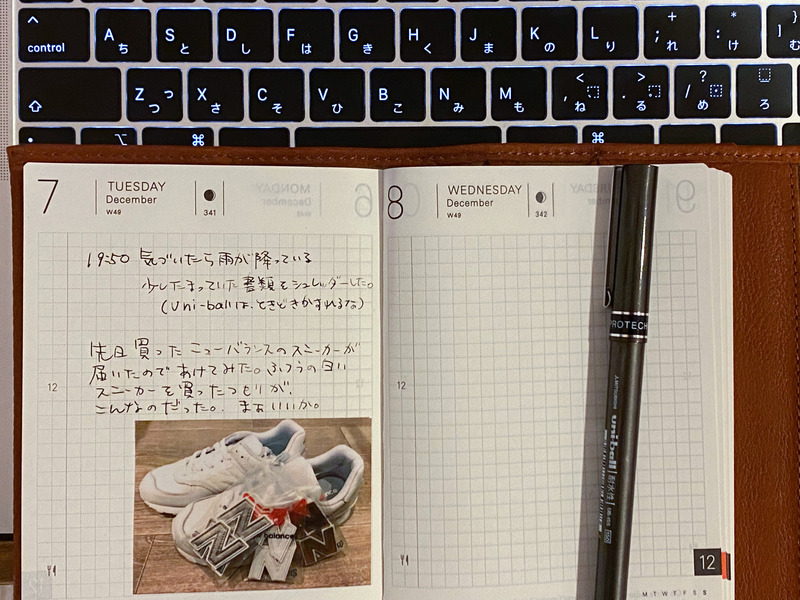 control
A ち
S と
D し
F は
G き
H く
J ま
K の
L り
+ ; れ
* : け
} ] む
Z つ っ
X さ
C そ
V ひ
B こ
N み
M も
< , ね
> . る
? / め
ろ
⌥
⌘
⌘
7
TUESDAY
December
W49
341
19:50 気づいたら雨が降っている
少したまっていた書類をシュレッダーした。
(uni-ballは、ときどきかすれるな)
先日買ったニューバランスのスニーカーが
届いたのであけてみた。ふつうの白い
スニーカーを買ったつもりが、
こんなのだった。まぁいいか。
12
balance
8
WEDNESDAY
December
W49
342
12
12
M T W T F S S
PROTECH
MITSUBISHI
uni-ball
耐水性